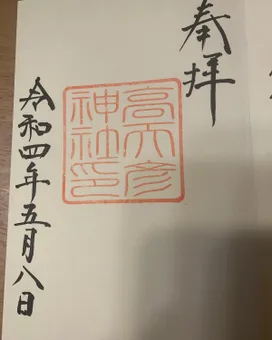 奉拝
高天彦
神社印
令和四年五月八日